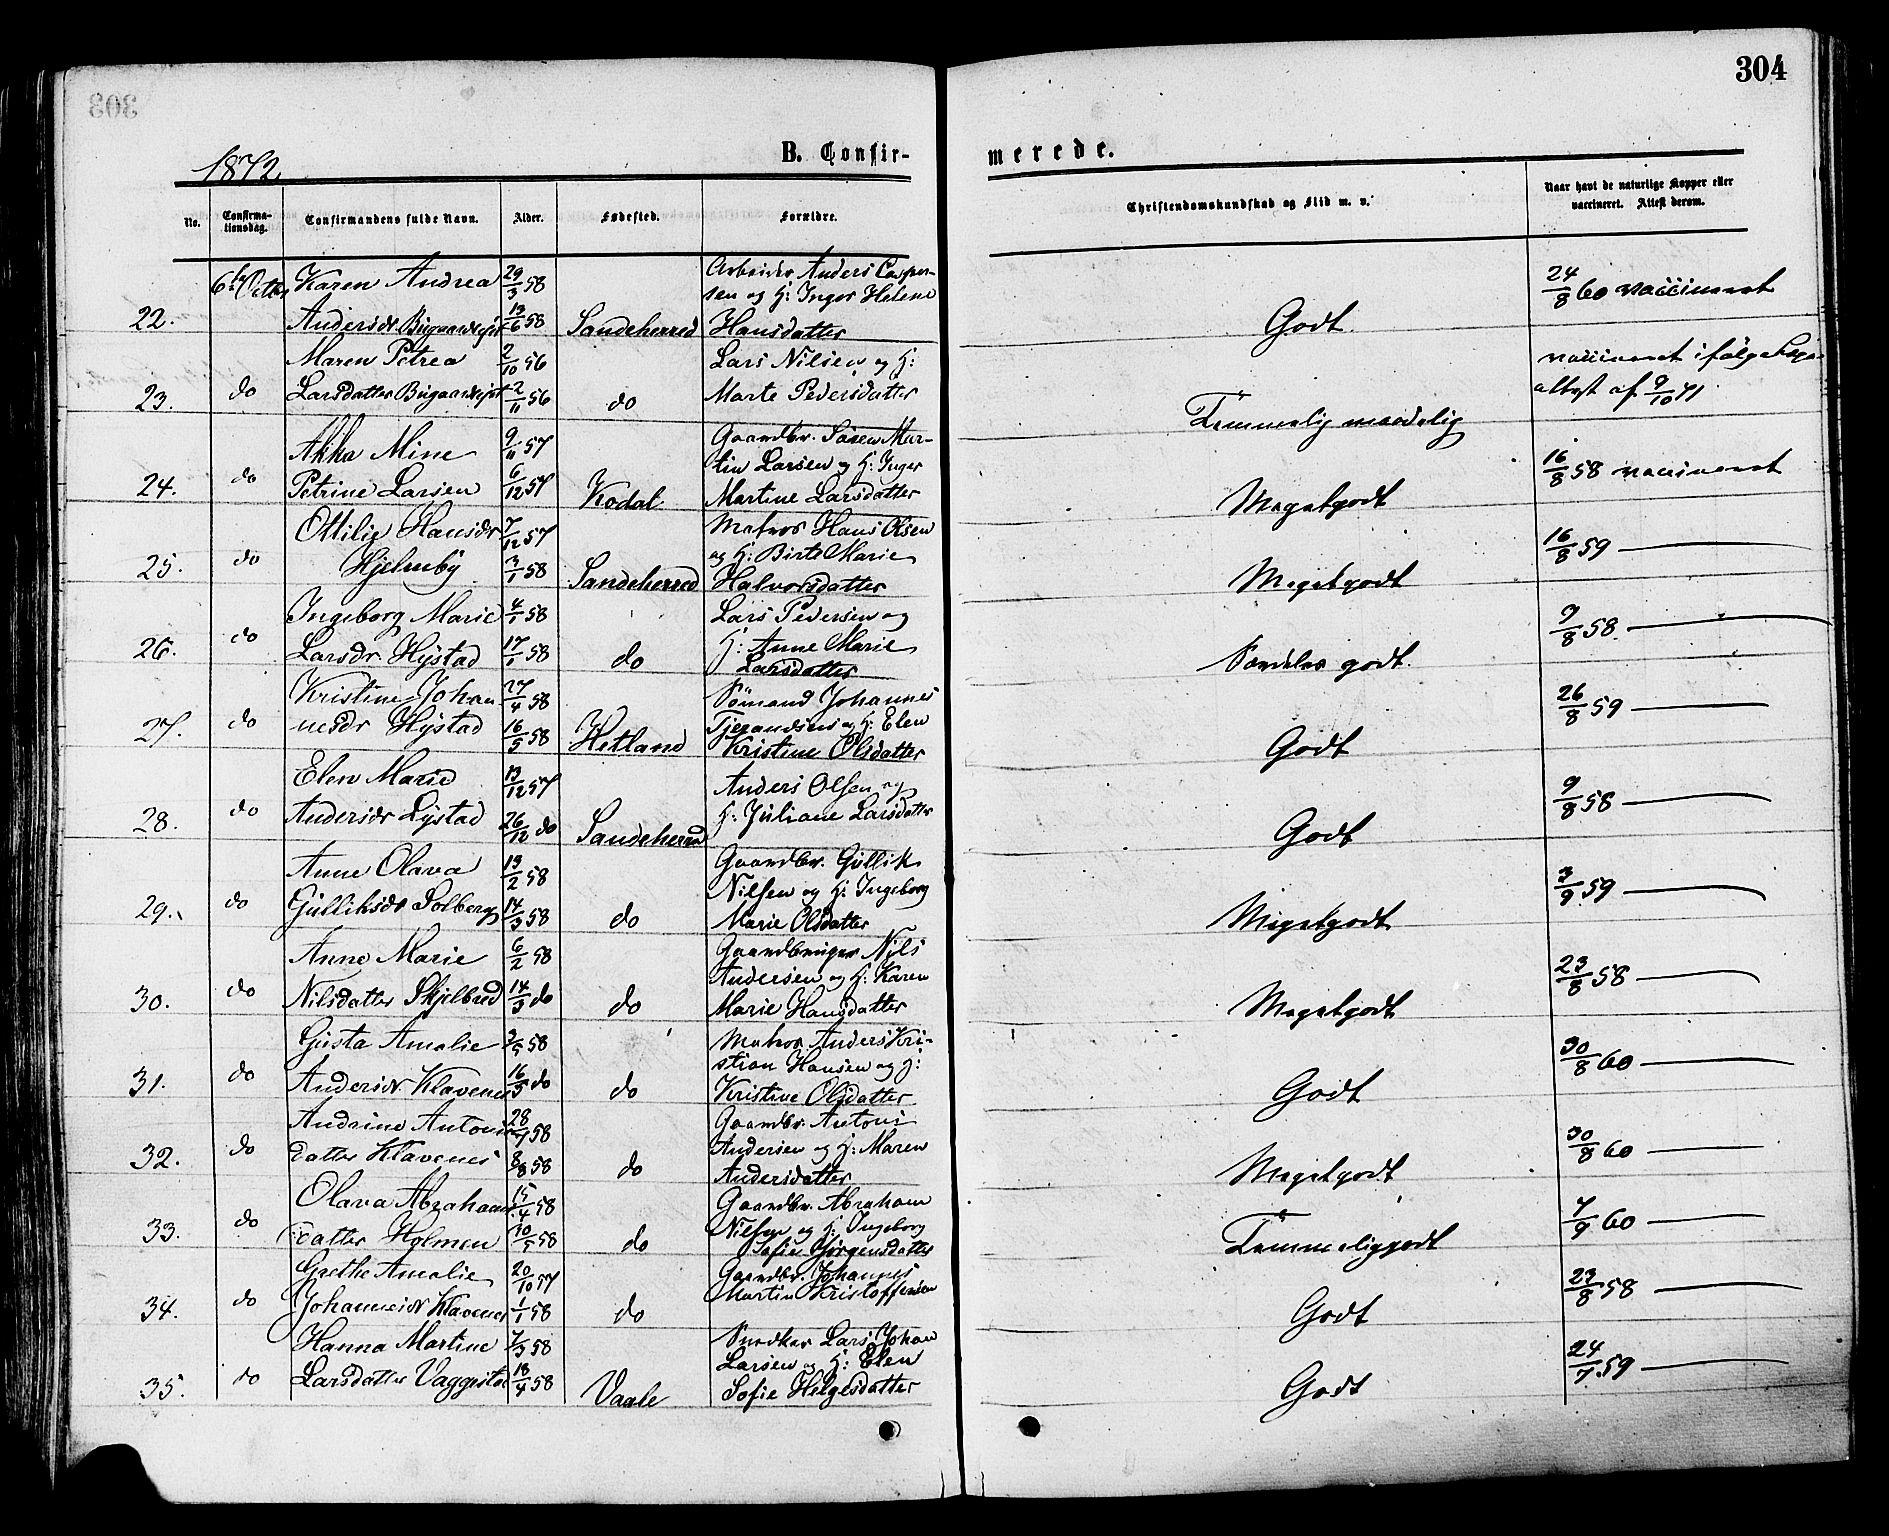 304
303
1872
B. Confir-
merede.
No.
Confirma-
tionsdag.
Confirmandens fulde Navn.
Alder.
Fødested.
Forældre.
Christendomskundskab og Flid m. v.
Naar havt de naturlige Kopper eller
vaccineret. Attest derom.
22. 6te Octbr Karen Andrea 29/3 58
Andersdr Bugaardejet 13/6 58 Sandeherred
Arbeider Anders Casper-
sen og H: Inger Helene
Hansdatter
Godt.
24/8 60 vaccineret
23. do Maren Petrea 2/10 56
Larsdatter Bugaardejet 2/11 56 do
Lars Nilsen og H:
Marte Pedersdatter
Temmelig maadelig
vaccineret ifølge
attest af 9/10 71
24. do Akka Mine 9/11 57
Petrine Larsen 6/12 57 Kodal
Gaardbr. Søren Mar-
tin Larsen og H: Inger
Martine Larsdatter
Megetgodt
16/8 58 vaccineret
25. do Ottilie Hansdr 7/12 57
Hjelmby 3/1 58 Sandeherred
Matros Hans Olsen
og H: Birte Marie
Halvorsdatter
Megetgodt
16/8 59 —
26. do Ingeborg Marie 4/1 58
Larsdr. Hystad 17/1 58 do
Lars Pedersen og
H: Anne Marie
Larsdatter
Særdeles godt.
9/8 58. —
27. do Kristine Johan 27/4 58
nesdr Hystad 16/5 58 Hetland
Sømand Johannes
Tjerandsen og H: Elen
Kristine Olsdatter
Godt
26/8 59 —
28. do Elen Marie 13/12 57
Andersdr Lystad 26/12 do Sandeherred
Anders Olsen og
H: Juliane Larsdatter
Godt
9/8 58 —
29. do Anne Olava 13/2 58
Gulliksdr Solberg 14/3 58 do
Gaardbr. Gullik
Nilsen og H: Ingeborg
Marie Olsdatter
Megetgodt
3/9 59 —
30. do Anne Marie 6/2 58
Nilsdatter Skjelbred 14/3 do do
Gaardbruger Nils
Andersen og H: Karen
Marie Hansdatter
Megetgodt
23/8 58 —
31. do Gusta Amalie 3/5 58
Andersdr. Klavenes 16/5 do do
Matros Anders Kri-
stian Hansen og H:
Kristine Olsdatter
Godt
30/8 60 —
32. do Andrine Antonis 28/7 58
datter Klavenes 8/8 58 do
Gaardbr. Antoni
Andersen og H: Maren
Andersdatter
Megetgodt
30/8 60 —
33. do Olava Abrahams 15/4 58
datter Holmen 10/5 58 do
Gaardbr. Abraham
Nilsen og H: Ingeborg
Sofie Jørgensdatter
Temmeliggodt
7/9 60 —
34. do Grethe Amalie 20/10 57
Johannesdr Klavenes 1/1 58 do
Gaardbr. Johannes
Martin Kristoffersen
Godt
23/8 58 —
35. do Hanna Martine 7/3 58
Larsdatter Vaggestad 18/4 58 Vaale
Snedker Lars Johan
Larsen og H: Elen
Sofie Helgesdatter
Godt
24/7 59 —